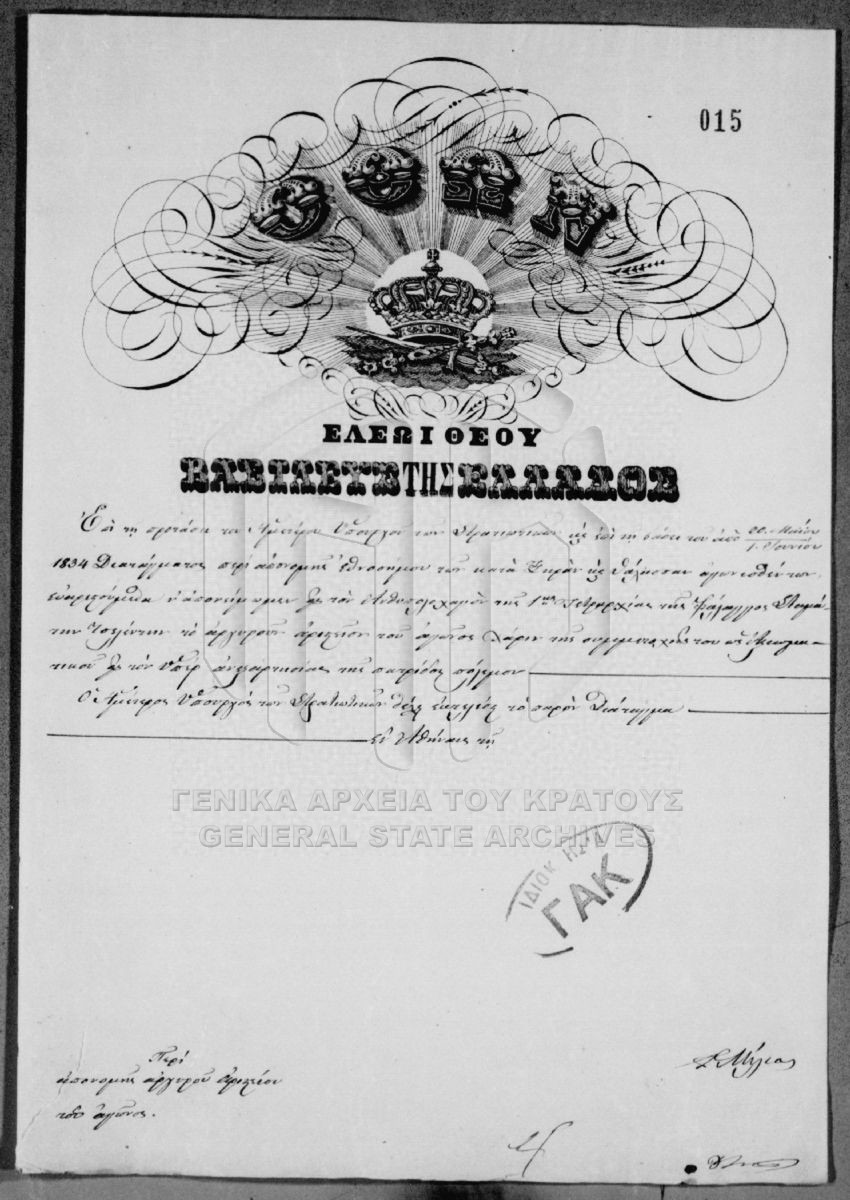 015
ΟΘΩΝ
ΕΛΕΩΙ ΘΕΟΥ
ΒΑΣΙΛΕΥΣ ΤΗΣ ΕΛΛΑΔΟΣ
Ἐπὶ τῇ προτάσει τοῦ Ἡμετέρου Ὑπουργοῦ τῶν Στρατιωτικῶν καὶ ἐπὶ τῇ βάσει τοῦ ἀπὸ 20 Μαΐου
1. Ἰουνίου
1834 Διατάγματος περὶ ἀπονομῆς τῶν κατὰ ξηρὰν καὶ θάλασσαν ἀγωνισθέντων,
εὐαρεστούμεθα ν' ἀπονείμωμεν εἰς τὸν Ἀνθυπολοχαγὸν τῆς Τετραρχίας τῆς Φάλαγγος
τὸ ἀργυροῦν ἀριστεῖον τοῦ ἀγῶνος χάριν τῆς συμμετοχῆς του ὡς Ἀξιωμα-
τικοῦ εἰς τὸν ὑπὲρ ἀνεξαρτησίας τῆς πατρίδος πόλεμον
Ὁ Ἡμέτερος Ὑπουργὸς τῶν Στρατιωτικῶν θέλει ἐκτελέσει τὸ παρὸν Διάταγμα
Ἐν Ἀθήναις τῇ
ΓΕΝΙΚΑ ΑΡΧΕΙΑ ΤΟΥ ΚΡΑΤΟΥΣ
GENERAL STATE ARCHIVES
ΙΔΙΟΚΤΗΣΙΑ
ΓΑΚ
Περὶ
ἀπονομῆς ἀργυροῦ ἀριστείου
τοῦ ἀγῶνος.